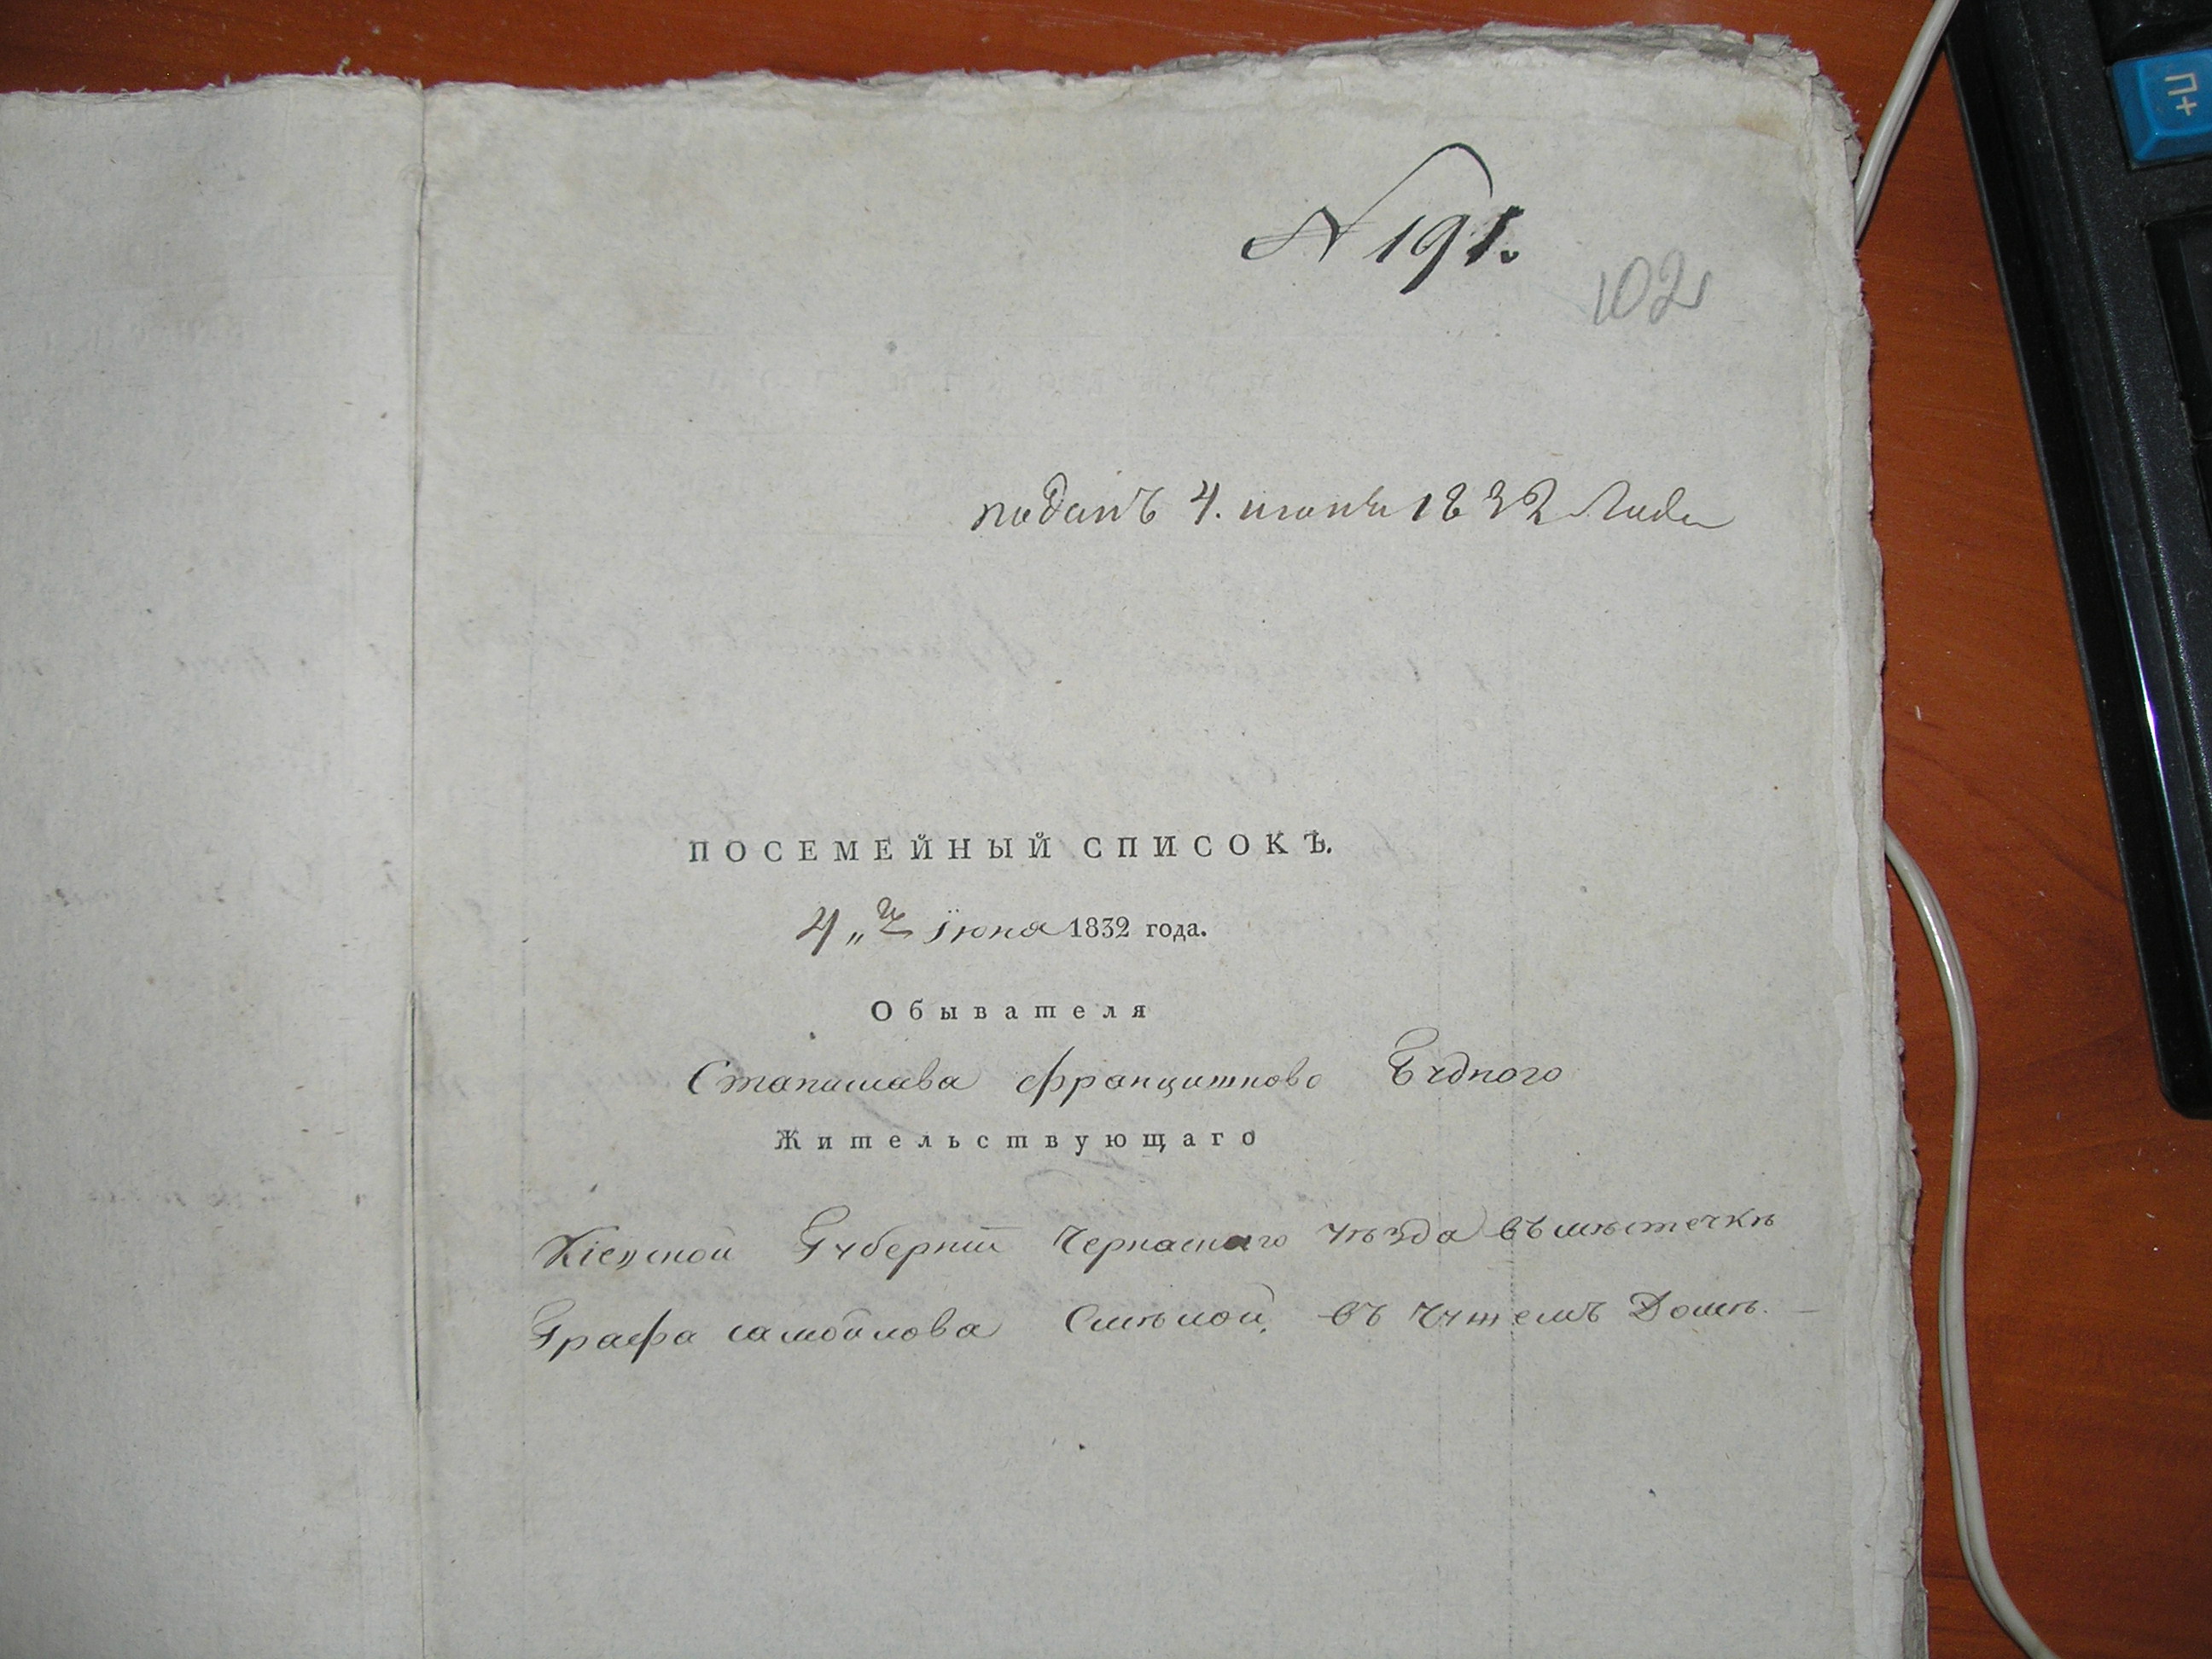 П+
N 191.
102
поданъ 4. июня 1832 Года
ПОСЕМЕЙНЫЙ СПИСОКЪ.
4„ го Їюня 1832 года.
Обывателя
Станислава Францишково
Жительствующаго
Кіевской Губерніи Черкаскаго уѣзда въ мѣстечкѣ
Графа самойлова Смѣлой, въ Чужемъ Домѣ. –